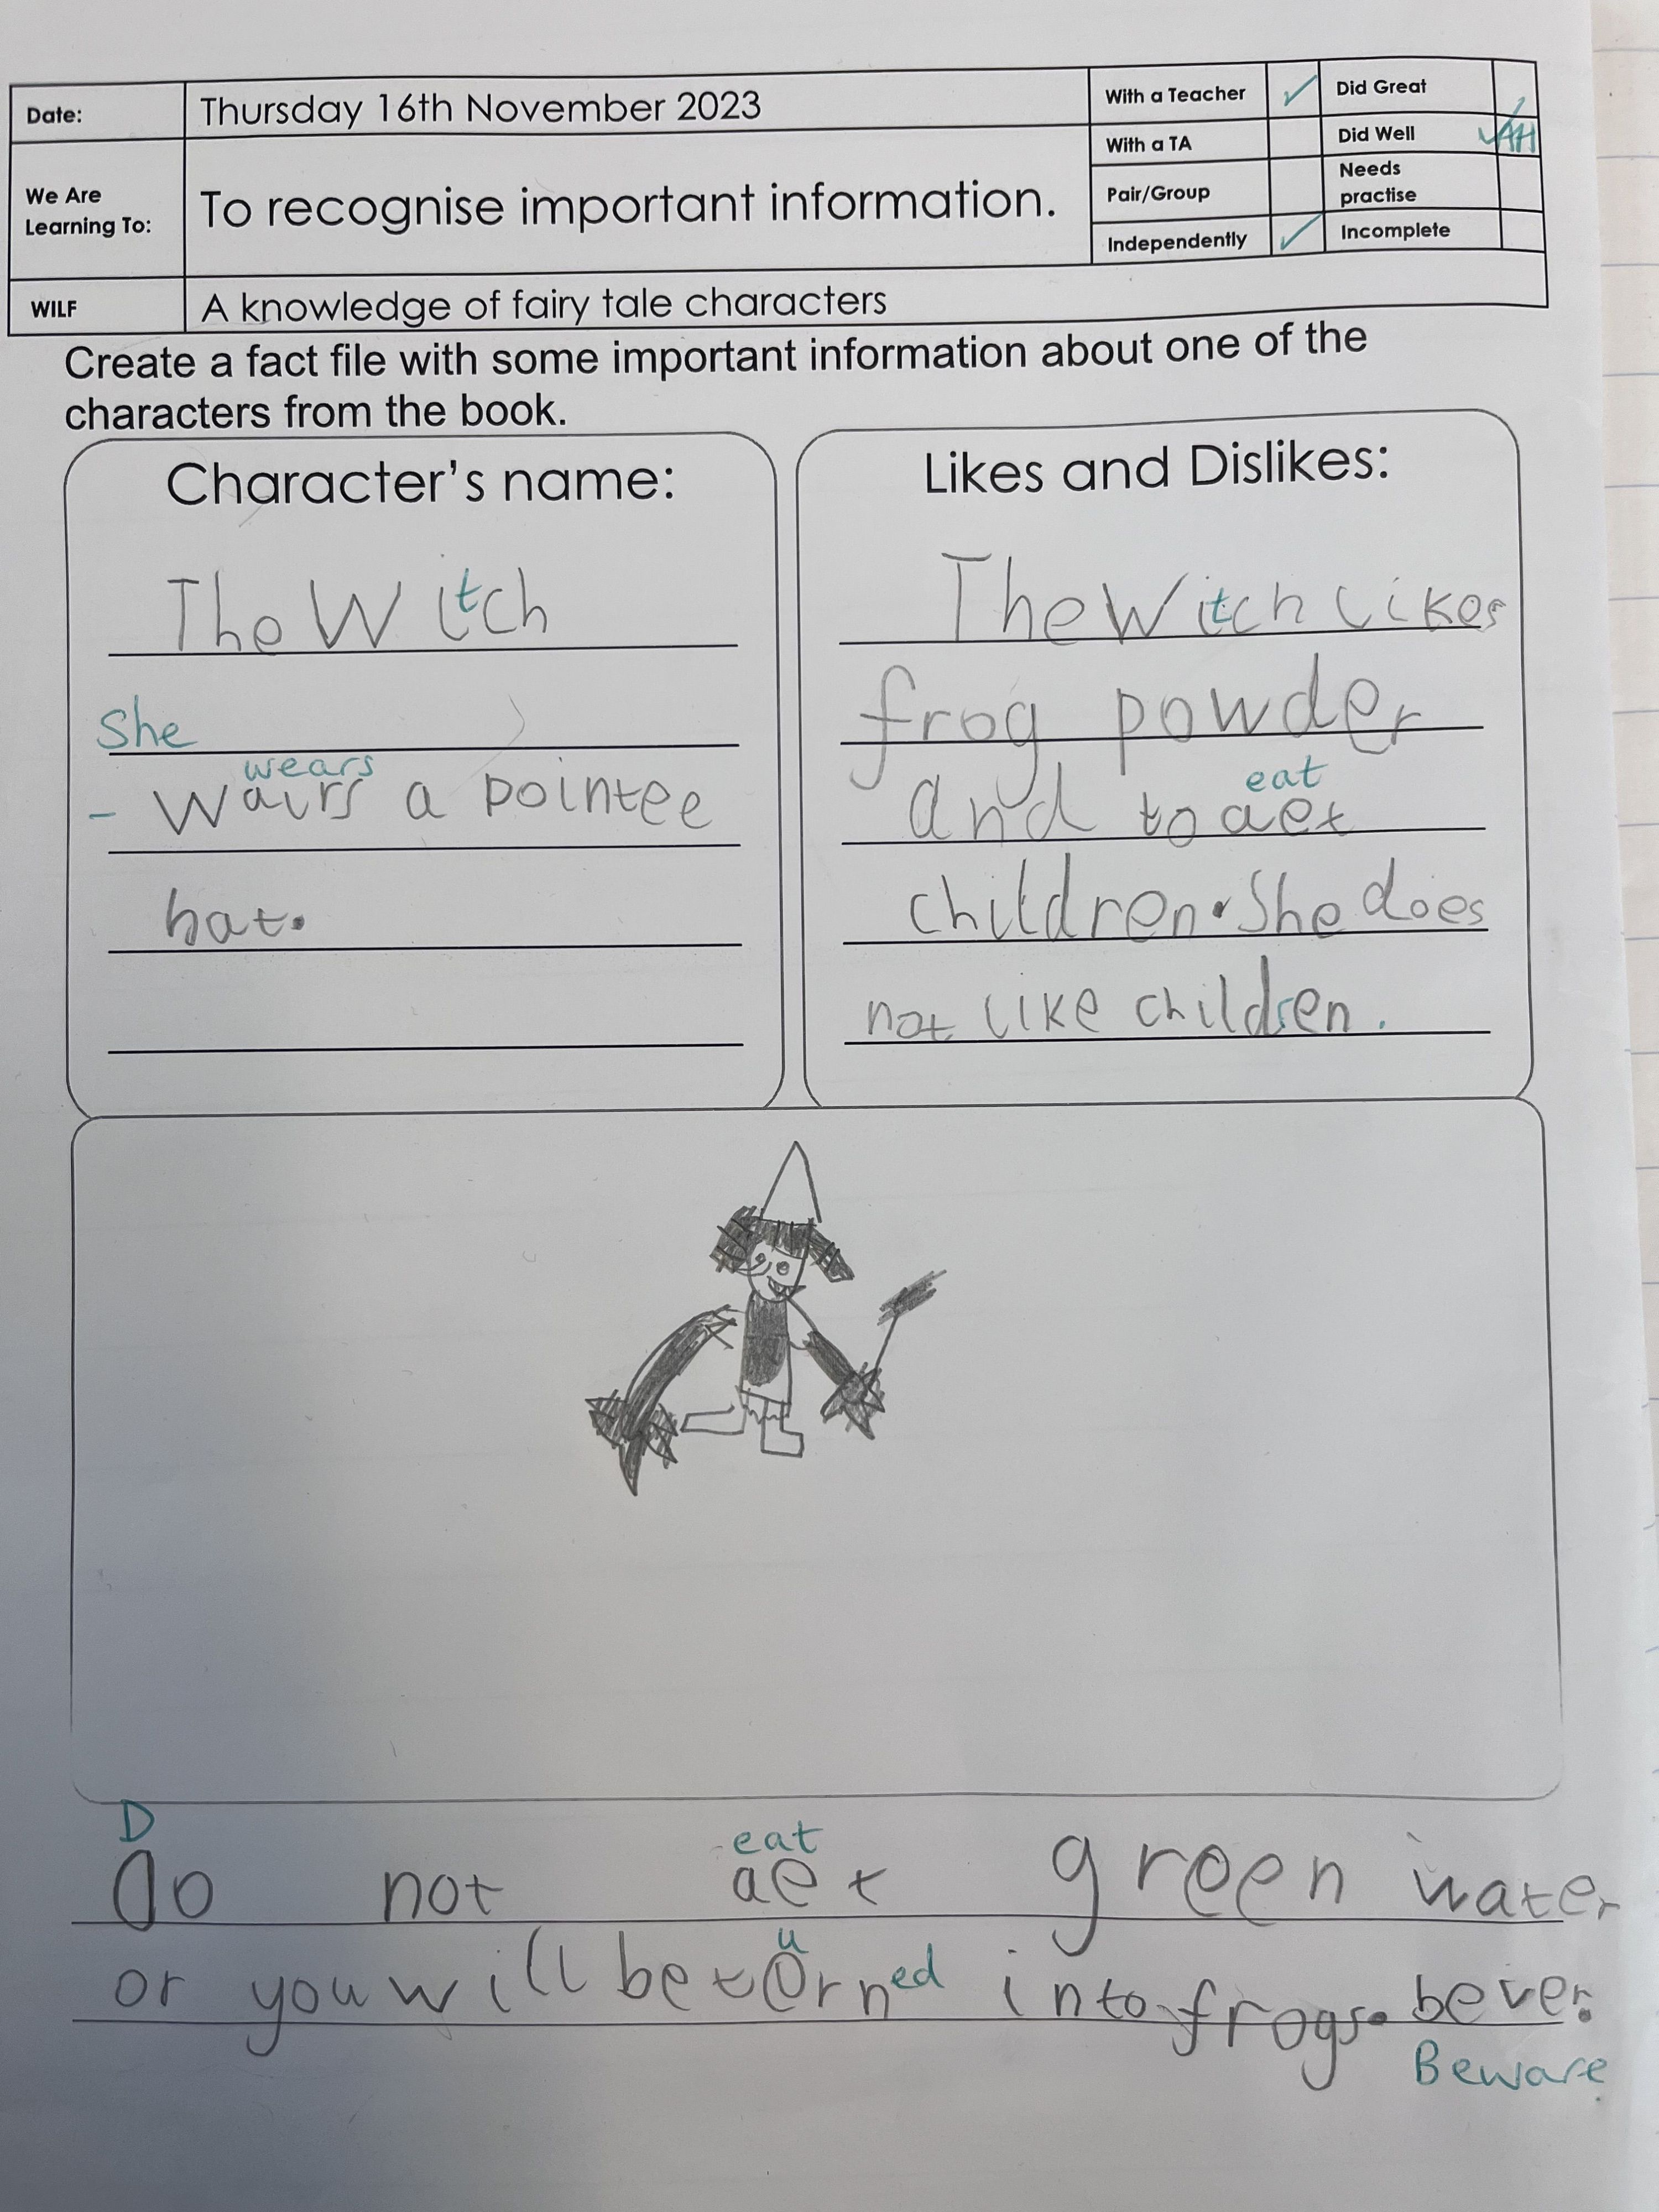 Date:
Thursday 16th November 2023
With a Teacher ✓
Did Great
With a TA
Did Well ✓ AH
We Are
Learning To:
To recognise important information.
Pair/Group
Needs
practise
Independently ✓
Incomplete
WILF
A knowledge of fairy tale characters
Create a fact file with some important information about one of the
characters from the book.
Character's name:
The Witch
She
wears
- wairs a pointee
hat.
Likes and Dislikes:
The Witch likes
frog powder
eat
and to aet
children. She does
not like children.
D
do not aet green water
eat
u
or you will be torned into frogs. bever.
Beware